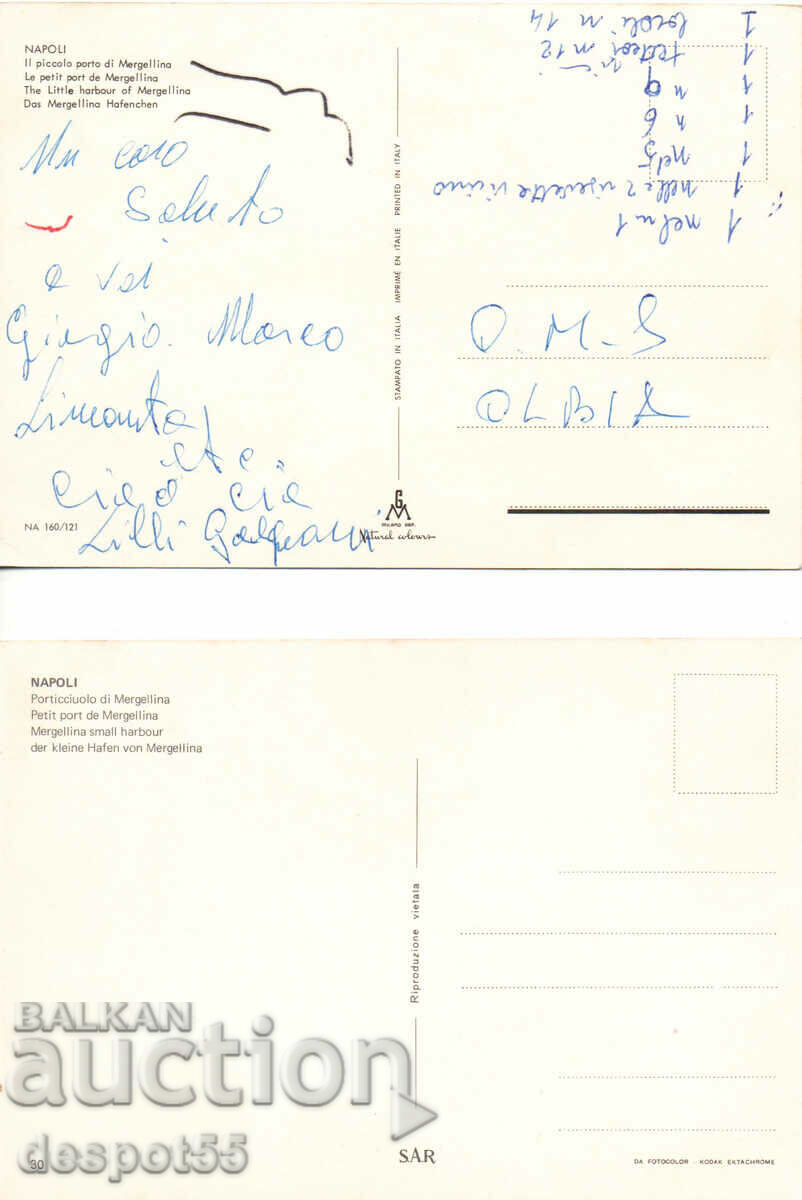 NAPOLI
Il piccolo porto di Mergellina
Le petit port de Mergellina
The Little harbour of Mergellina
Das Mergellina Hafenchen
Un caro
Saluto
a voi
Giorgio. Marco
Simonta
etc.
ciao cia
Lilli
NA 160/121
STAMPATO IN ITALIA IMPRIMÉ EN ITALIE PRINTED IN ITALY
GM
MILANO DEP.
Natural colours
1 nel n 1
1 nelle 2 vicino
1 nel 5
1 n 6
1 n 9
1 n 12
1 n 14
O. M. S
OLBIA
NAPOLI
Porticciuolo di Mergellina
Petit port de Mergellina
Mergellina small harbour
der kleine Hafen von Mergellina
Riproduzione vietata
30
S.A.R
DA FOTOCOLOR - KODAK EKTACHROME
BALKAN
auction
despot55